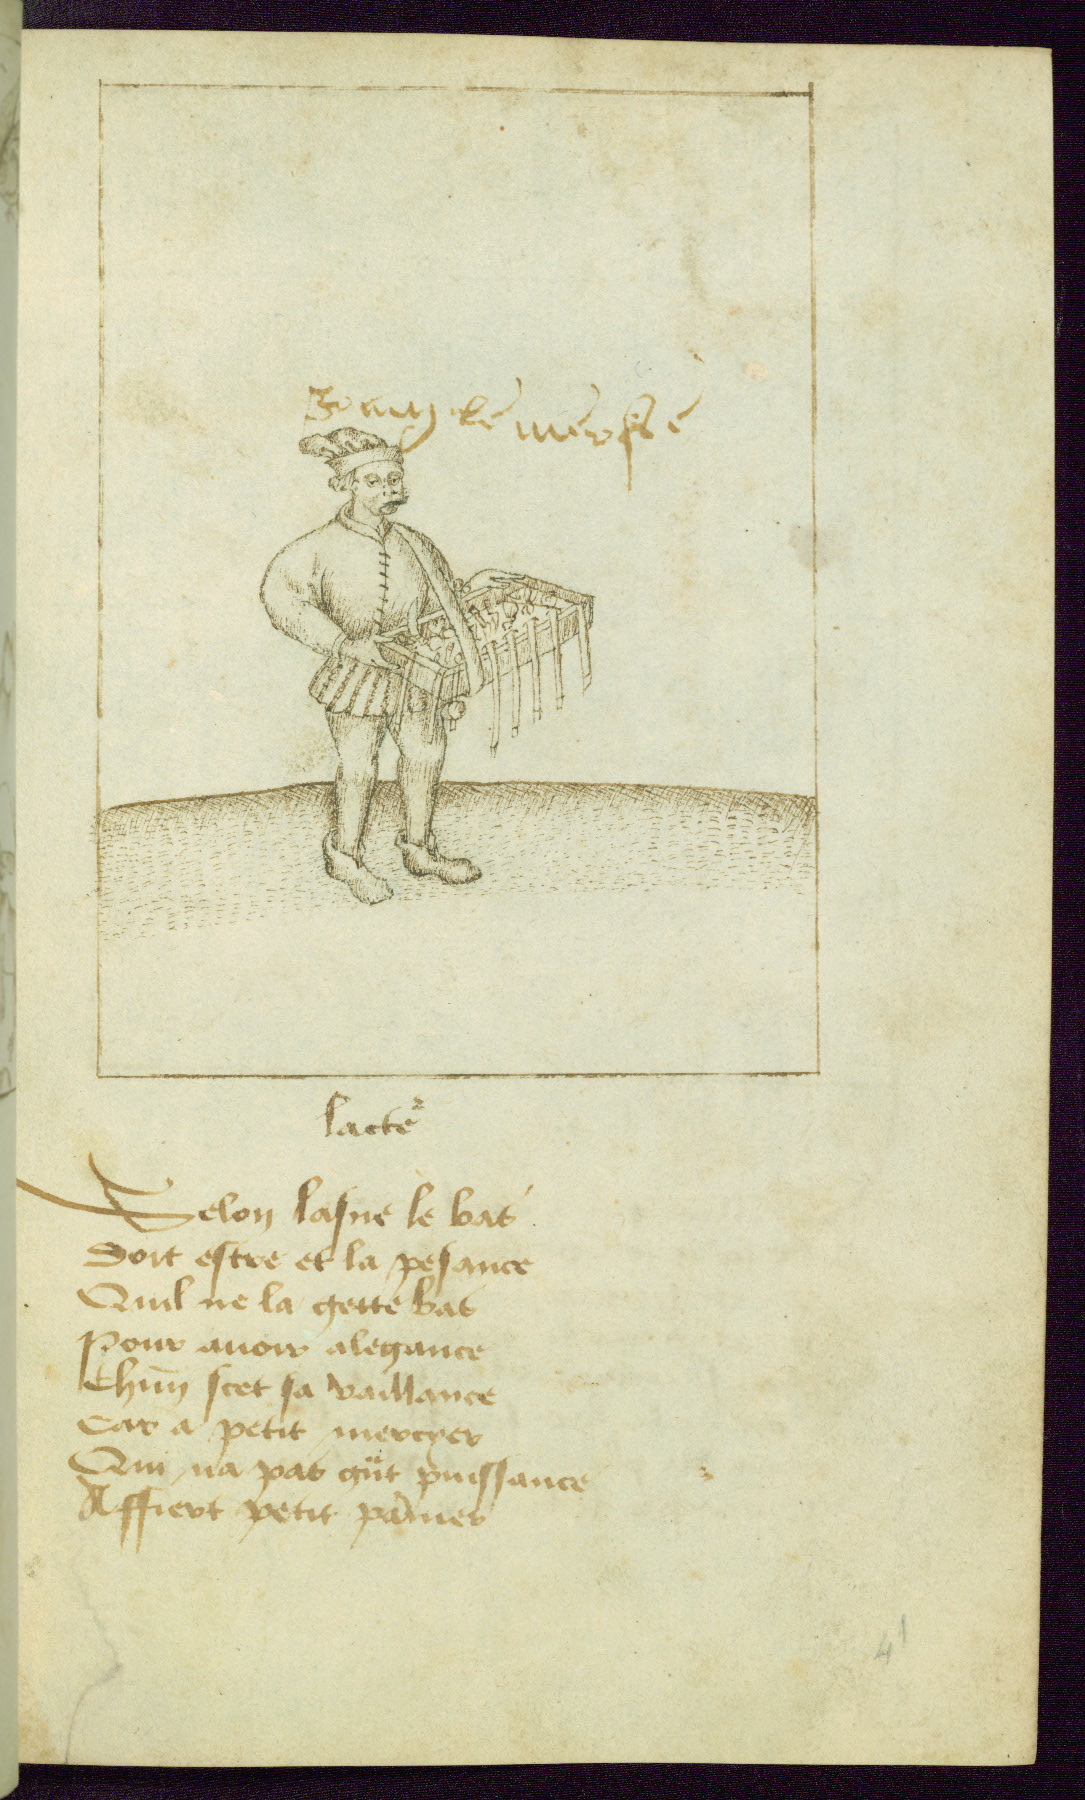 lacte
Selon lasne le bas
Doit estre et la pesance
Quil ne la gette bas
Pour auoir alegance
Chūn scet sa vaillance
Car a petit mercyer
Qui na pas gūt puissance
Affiert petit panier
41